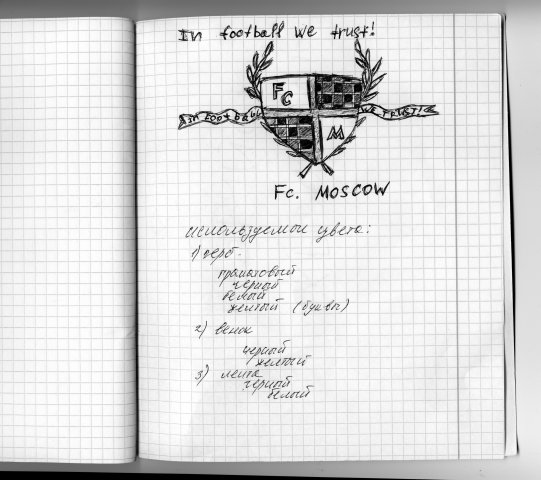 In football we trust!
FC
IN FOOTBALL WE TRUST!
M
Fc. MOSCOW
используемои цвета:
1) герб.
гранатовый
черный
белый
желтый (буквы)
2) венок
черный
желтый
3) лента
черный
белый